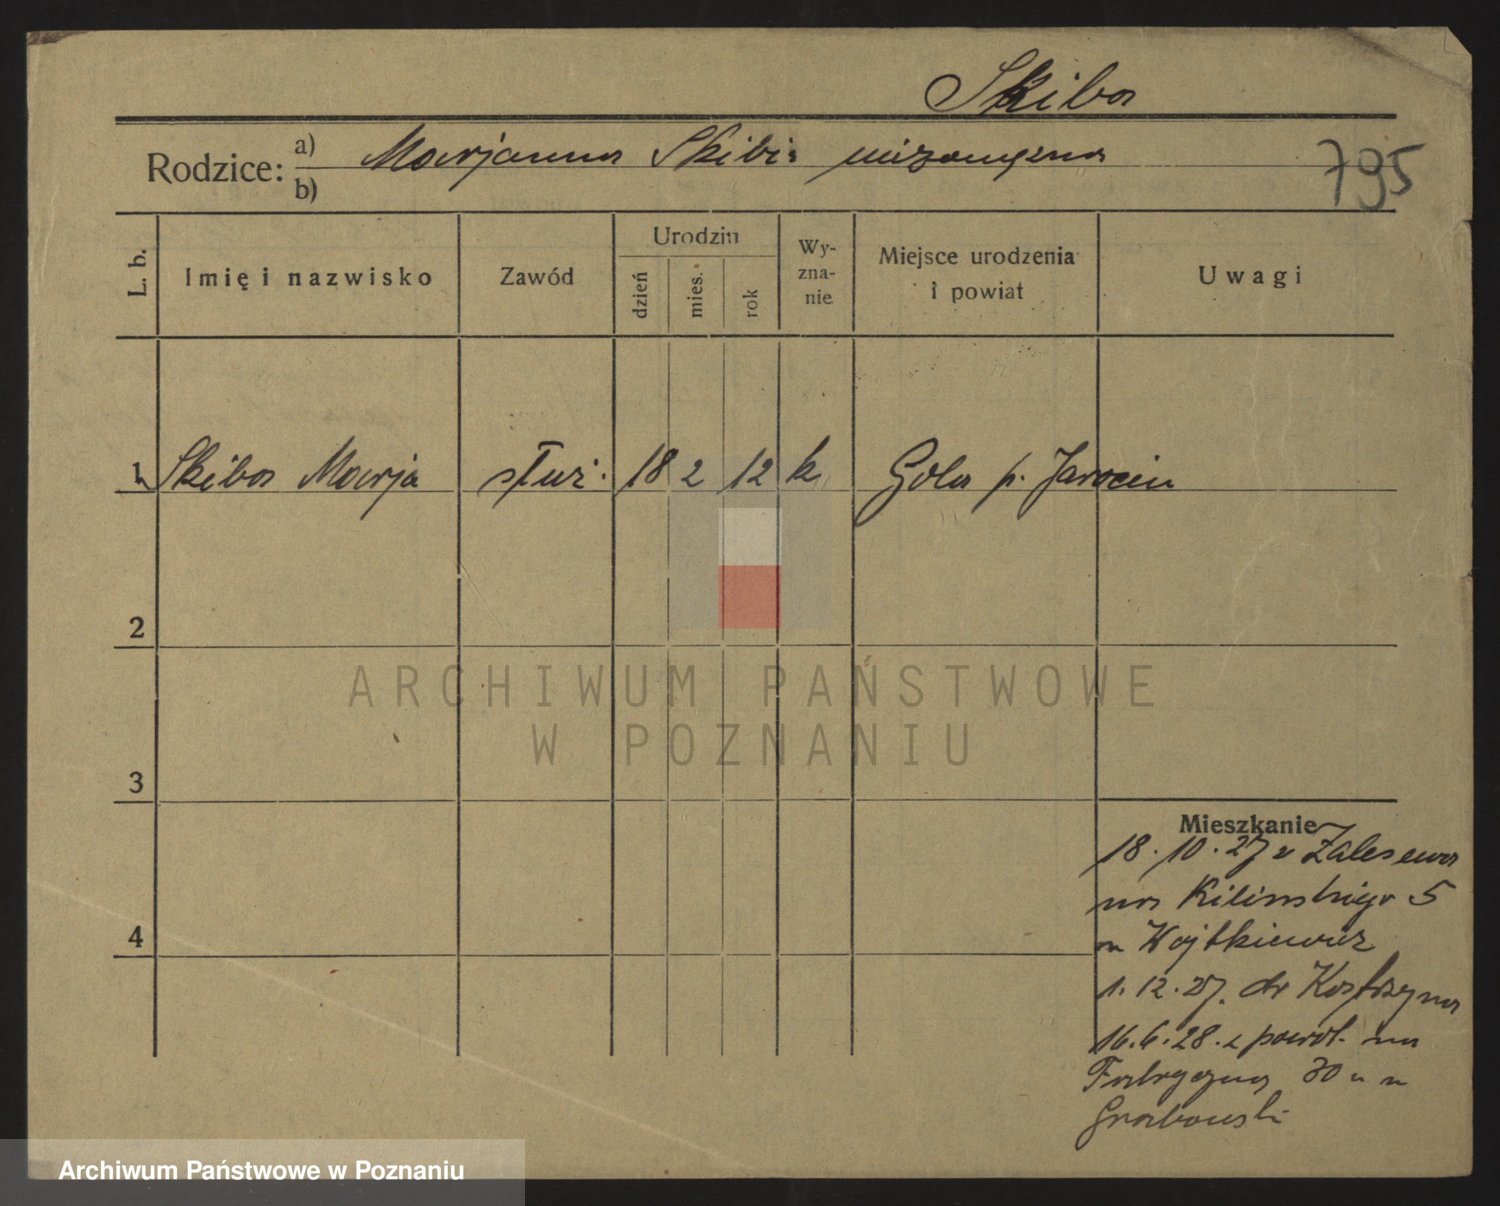 Skiba
Rodzice: a) Marjanna Skiba niezamężna
b)
795
L. b. Imię i nazwisko Zawód Urodzin dzień mies. rok Wyznanie Miejsce urodzenia i powiat Uwagi
1 Skiba Marja służ. 18 2 12 k Gola p. Jarocin
2
3
4
Mieszkanie
18.10.27 z Zalesewa
na Kilińskiego 5
Wojtkiewicz
1.12.27. do Kostrzyna
16.6.28. z powrt. na
Fabryczną 30
Grabowski
ARCHIWUM PAŃSTWOWE
W POZNANIU
Archiwum Państwowe w Poznaniu